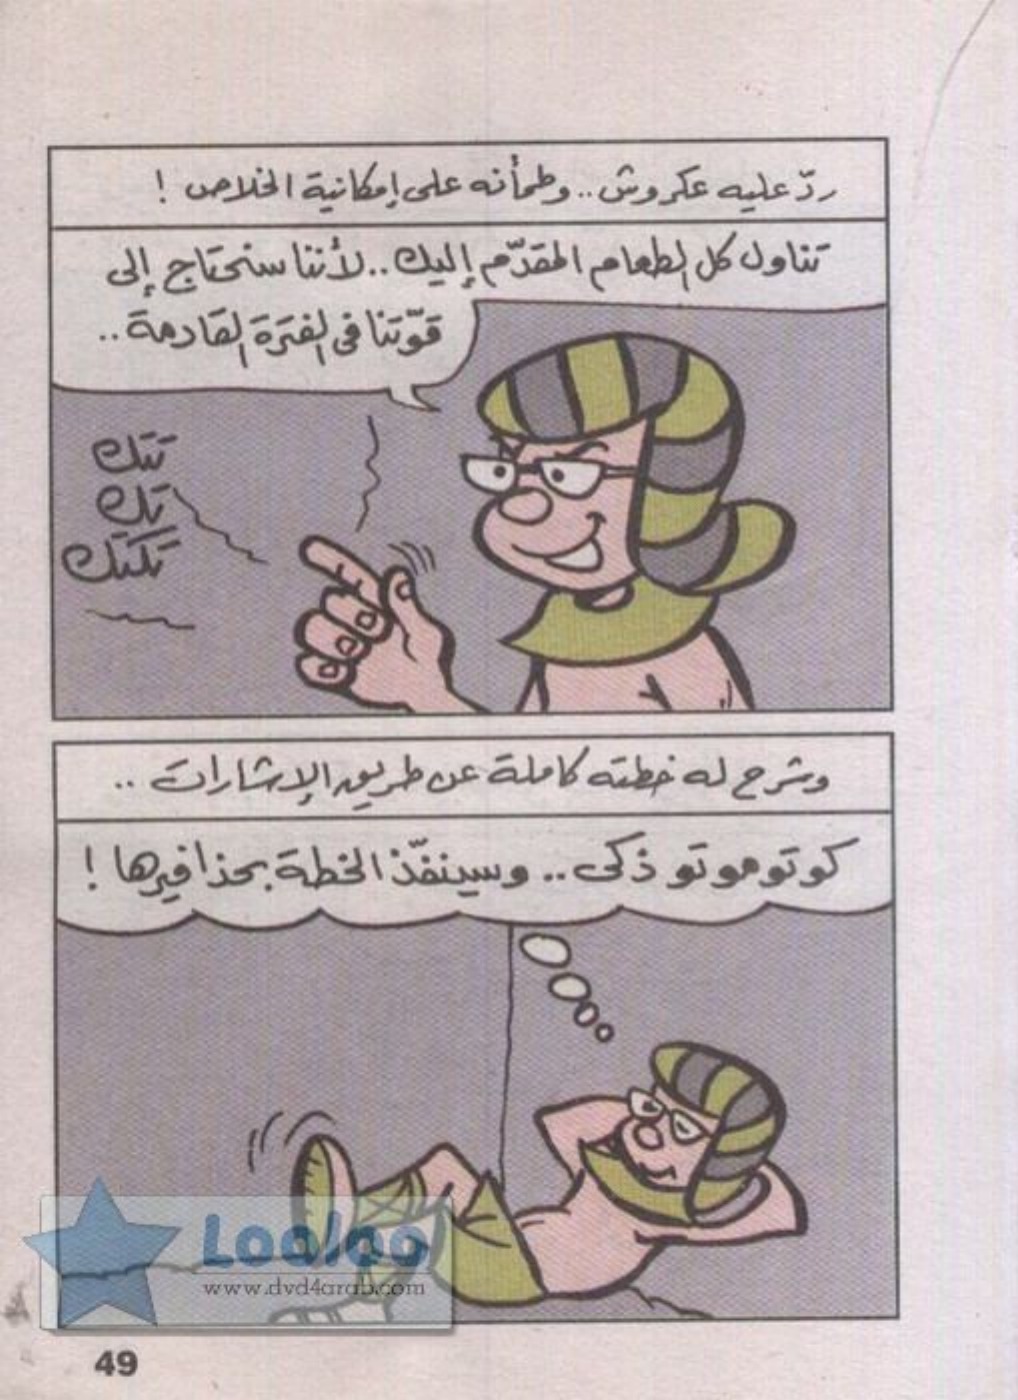 ردّ عليه عكروش.. وطمأنه على إمكانية الخلاص !
تناول كل الطعام المقدّم إليك.. لأننا سنحتاج إلى
قوّتنا في الفترة القادمة..
تتك
تك
تكتك
وشرح له خطته كاملة عن طريق الإشارات ..
كوتوموتو ذكى.. وسينفّذ الخطة بحذافيرها !
Looloo
www.dvd4arab.com
49